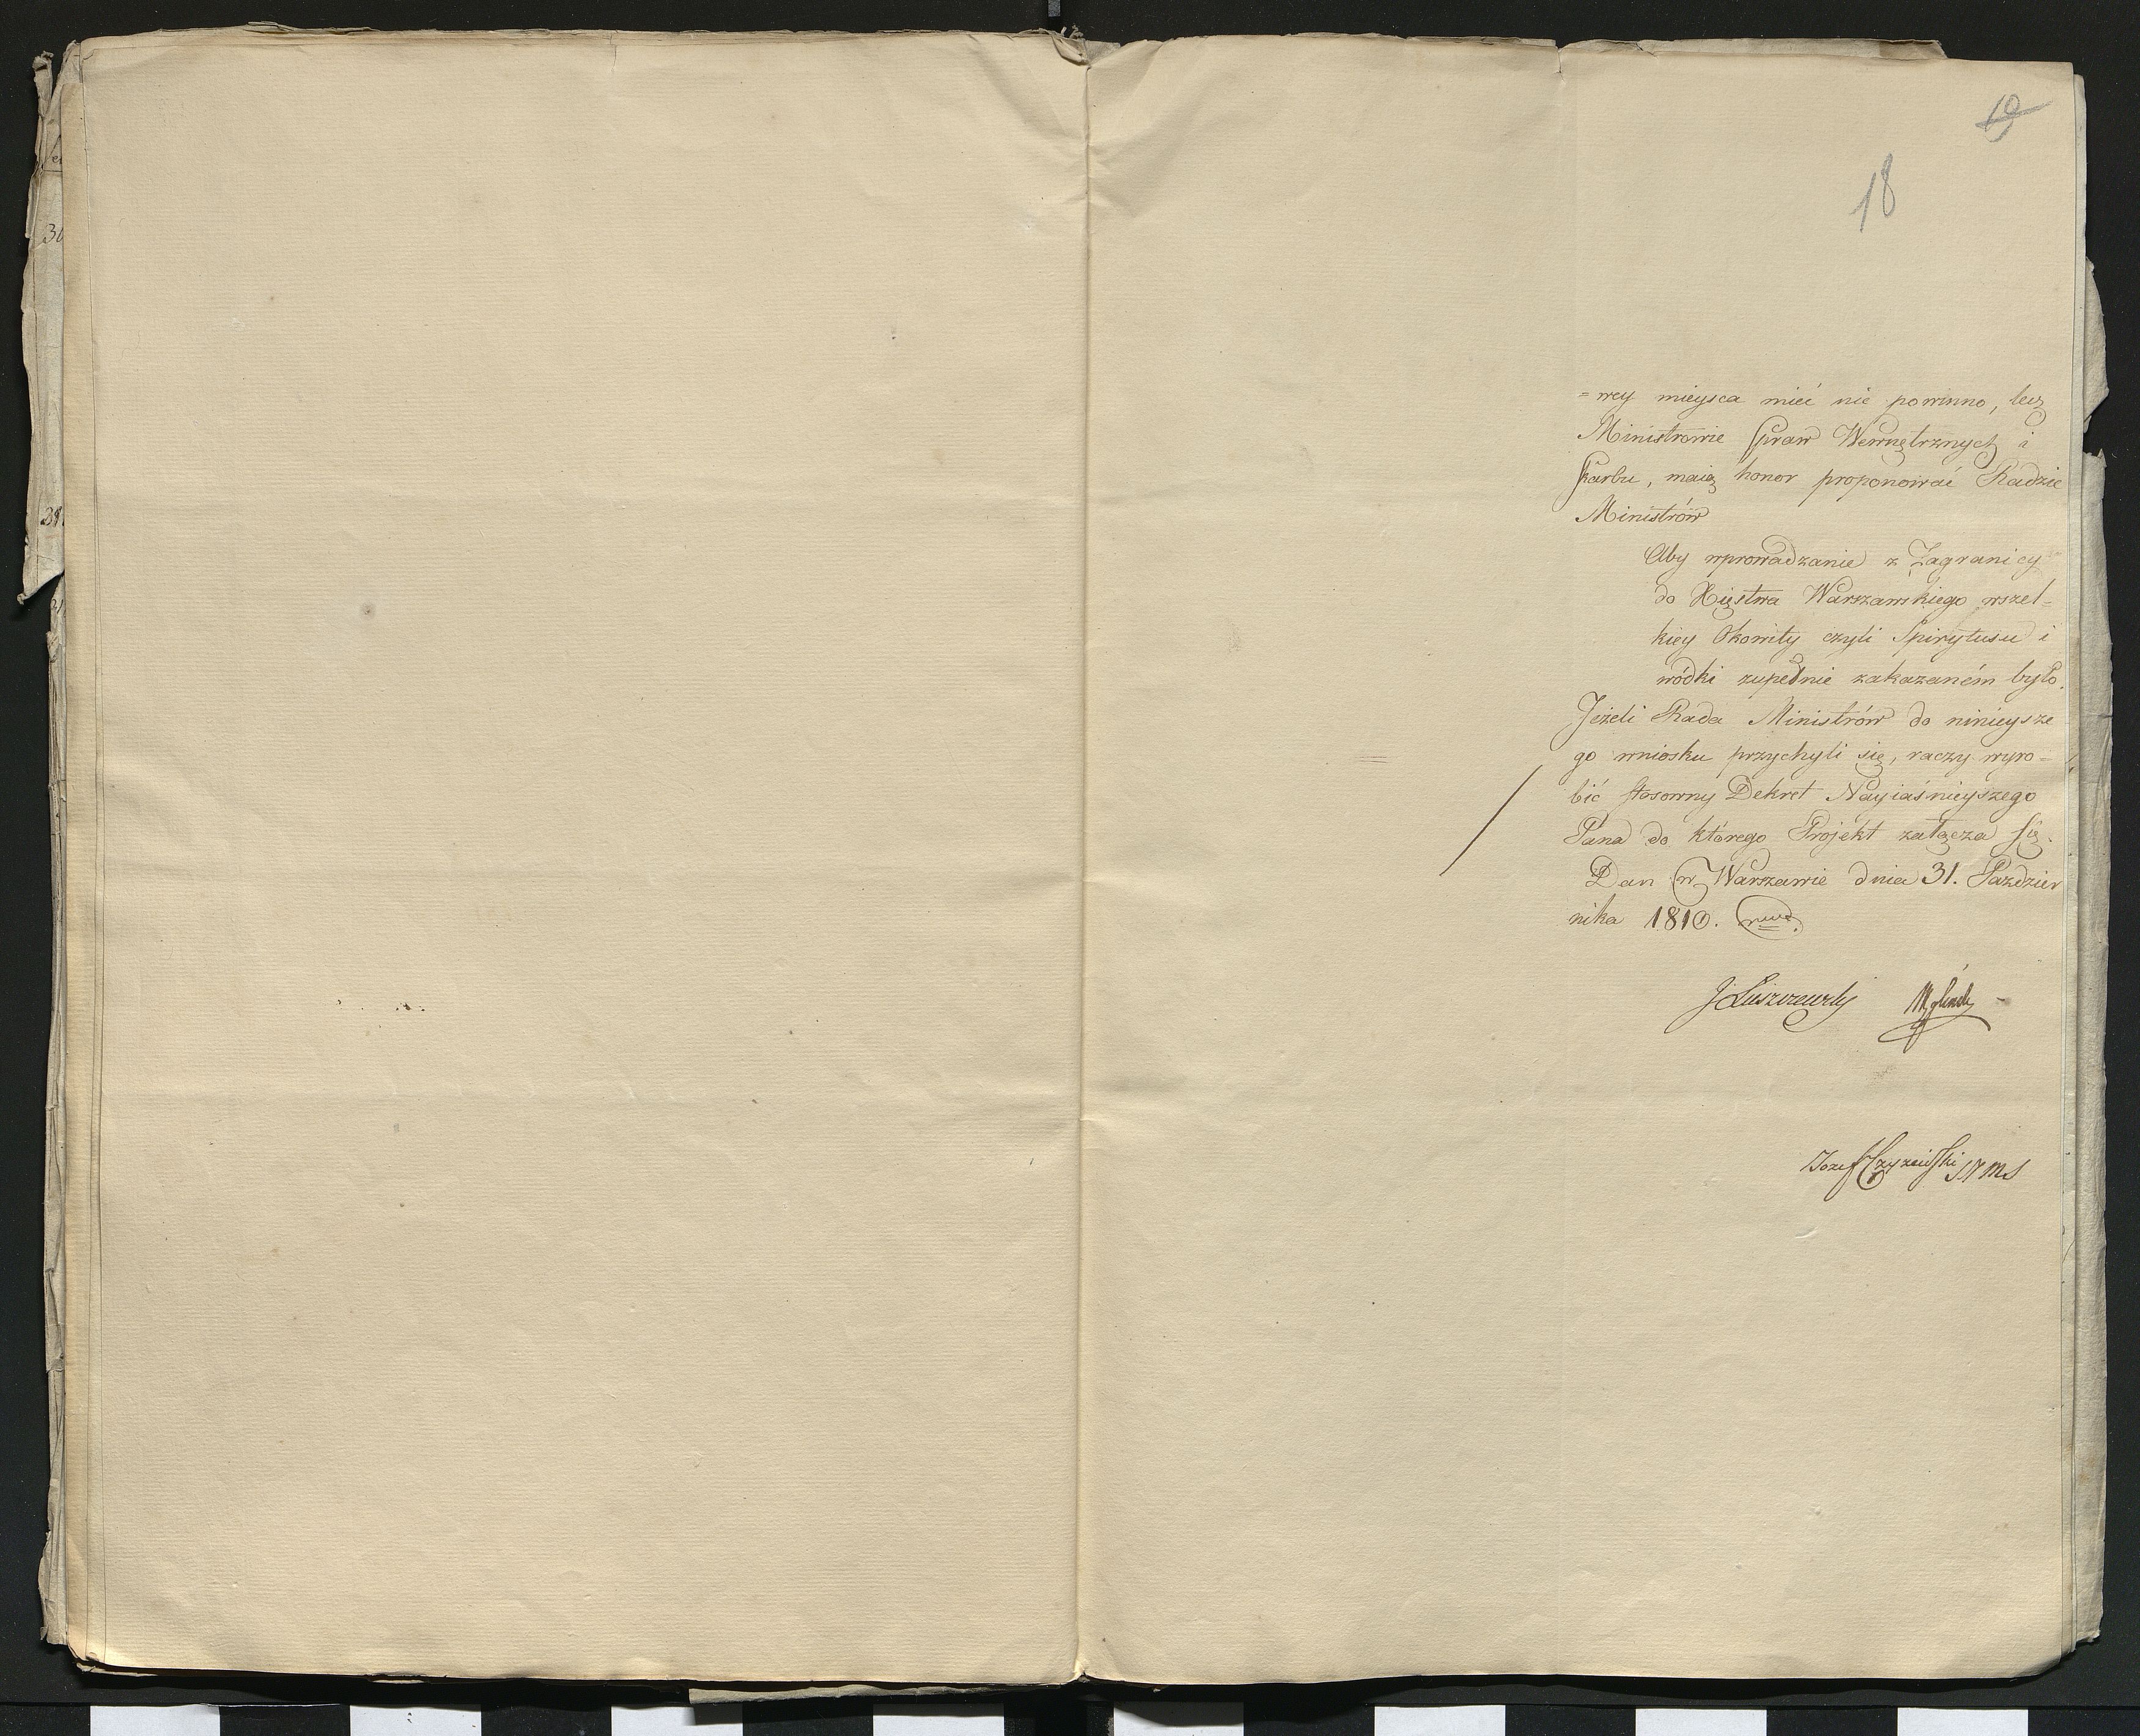 19
18
=wey mieysca mieć nie powinno, lecz
Ministrowie Spraw Wewnętrznych i
Skarbu, maią honor proponować Radzie
Ministrów
Aby wprowadzanie z Zagranicy
do Xięstwa Warszawskiego wszel=
kiey Okowity czyli Spirytusu i
wódki zupełnie zakazaném było.
Jeżeli Rada Ministrów do ninieysze
go wniosku przychyli się, raczy wyro=
bić stosowny Dekret Nayiaśnieyszego
Pana do którego Projekt załącza się.
Dan w Warszawie dnia 31. Paździer
nika 1810.
J Łuszczewski
Jozef